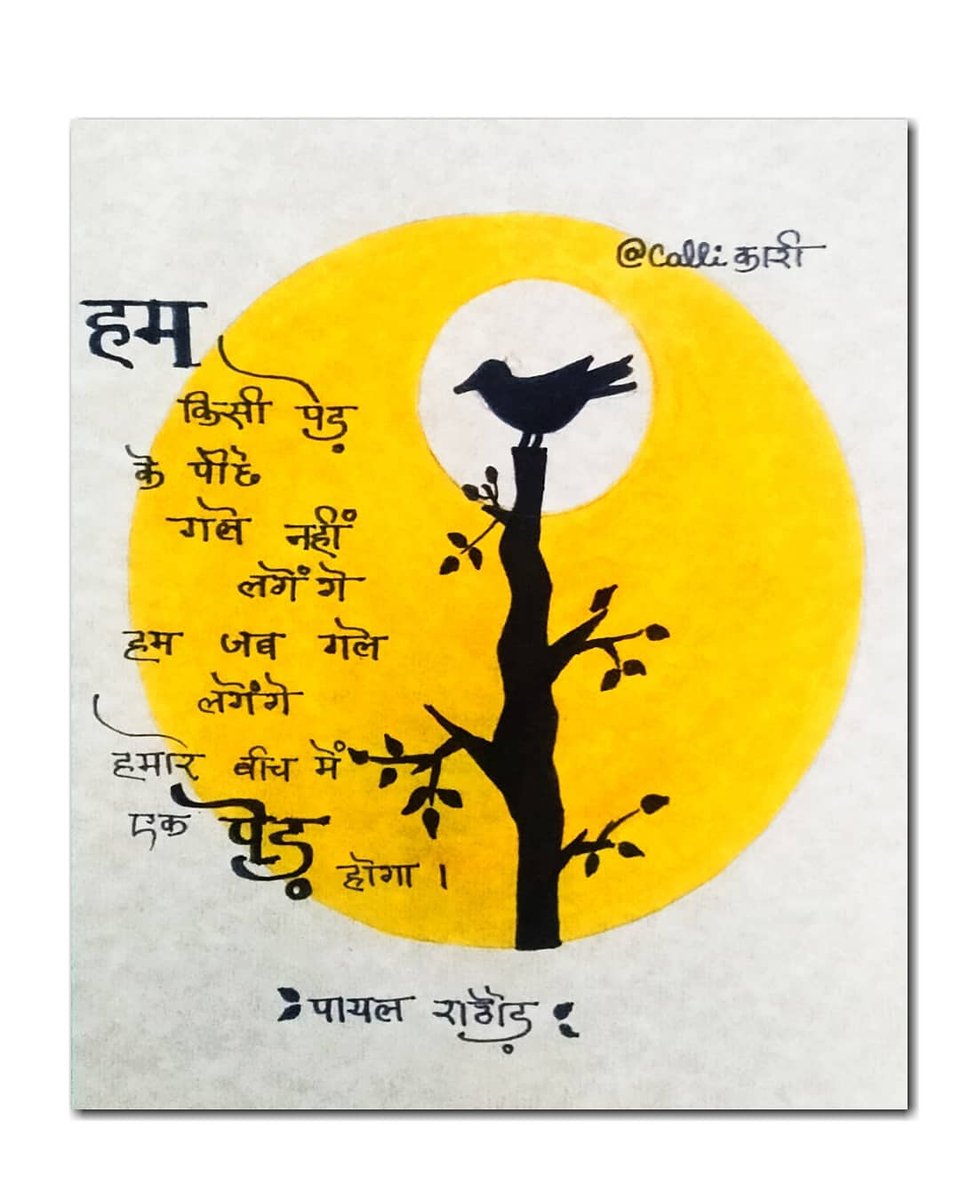 @Calli कारी
हम
किसी पेड़
के पीछे
गले नहीं
लगेंगे
हम जब गले
लगेंगे
हमारे बीच में
एक पेड़
होगा ।
पायल राठौड़